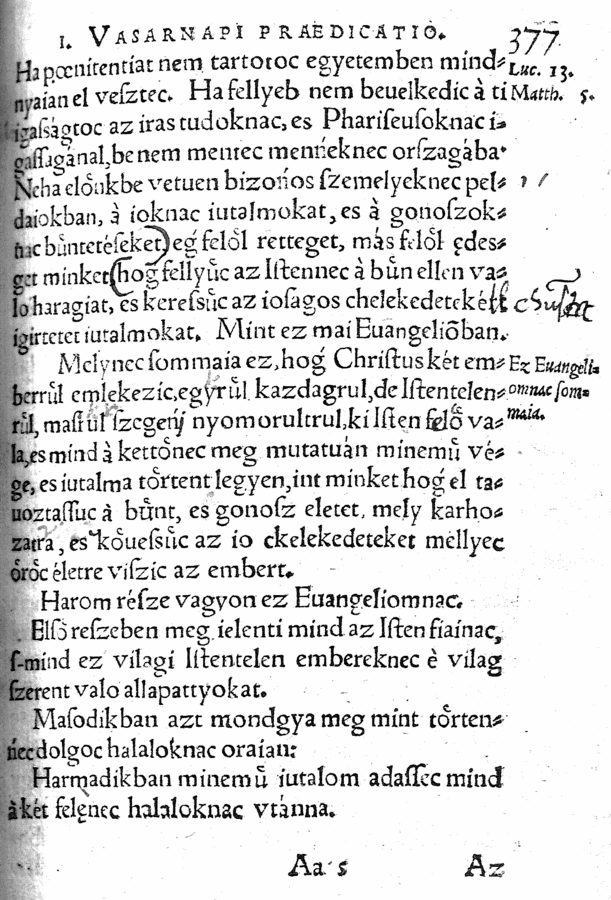 1. VASARNAPI PRAEDICATIO. 377
Ha pœnitentiat nem tartotoc egyetemben mind⸗ Luc. 13.
nyaian el veſztec. Ha fellyeb nem beuelkedic à ti Matth. 5.
igaſságtoc az iras tudoknac, es Phariſeuſoknac i⸗
gaſſagánal, be nem mentec menńeknec orſzagába.
Neha elo̊nkbe vetuen bizońos ſzemelyeknec pel⸗
daiokban, à ioknac iutalmokat, es à gonoſzok⸗
nac bu̇ntetéſeket) eǵ felo̊l retteget, más felo̊l ędes⸗
get minket (hoǵ fellyu̇c az Iſtennec à bu̇n ellen va⸗
lo haragiat, es kereſsu̇c az ioſagos chelekedetekért
igirtetet iutalmokat. Mint ez mai Euangeliōban.
Melynec ſommaia ez, hoǵ Chriſtus két em⸗ Ez Euangeli⸗
berru̇l emlekezic, egyru̇l kazdagrul, de Iſtentelen⸗ omnac ſom⸗
ru̇l, maſſul ſzegeńy nyomorultrul, ki Iſten felo̊ va⸗ maia.
la, es mind à ketto̊nec meg mutatuán minemu̇ vé⸗
ge, es iutalma to̊rtent legyen, int minket hoǵ el ta⸗
uoztaſſuc à bu̇nt, es gonoſz eletet, mely karho⸗
zatra, es ko̊ueſsu̇c az io ckelekedeteket mellyec
o̊ro̊c életre viſzic az embert.
Harom réſze vagyon ez Euangeliomnac.
Elſo̊ reſzeben meg ielenti mind az Iſten fiainac,
ſ-mind ez vilagi Iſtentelen embereknec è vilag
ſzerent valo allapattyokat.
Maſodikban azt mondgya meg mint to̊rten⸗
ńec dolgoc halaloknac oraian:
Harmadikban minemu̇ iutalom adaſſec mind
à két felęnec halaloknac vtánna.
Aa 5 Az